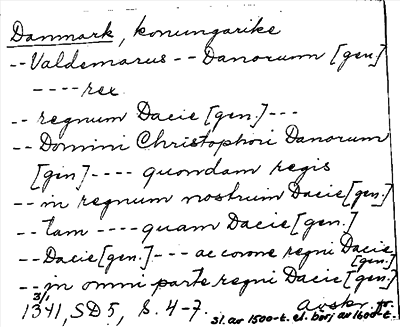 Danmark, konungarike
-- Valdemarus -- Danorum [gen.]
---- rex
-- regnum Dacie [gen.] ---
-- Domini Christophori Danorum
[gen] ---- quondam regis
-- in regnum nostrum Dacie [gen.]
-- tam ---- quam Dacie [gen.]
-- Dacie [gen.] --- ac corone regni Dacie [gen.]
-- in omni parte regni Dacie [gen.]
3/1 1341, SD 5, S. 4-7. Avskr. fr.
sl. av 1500-t. el. börj av 1600-t.